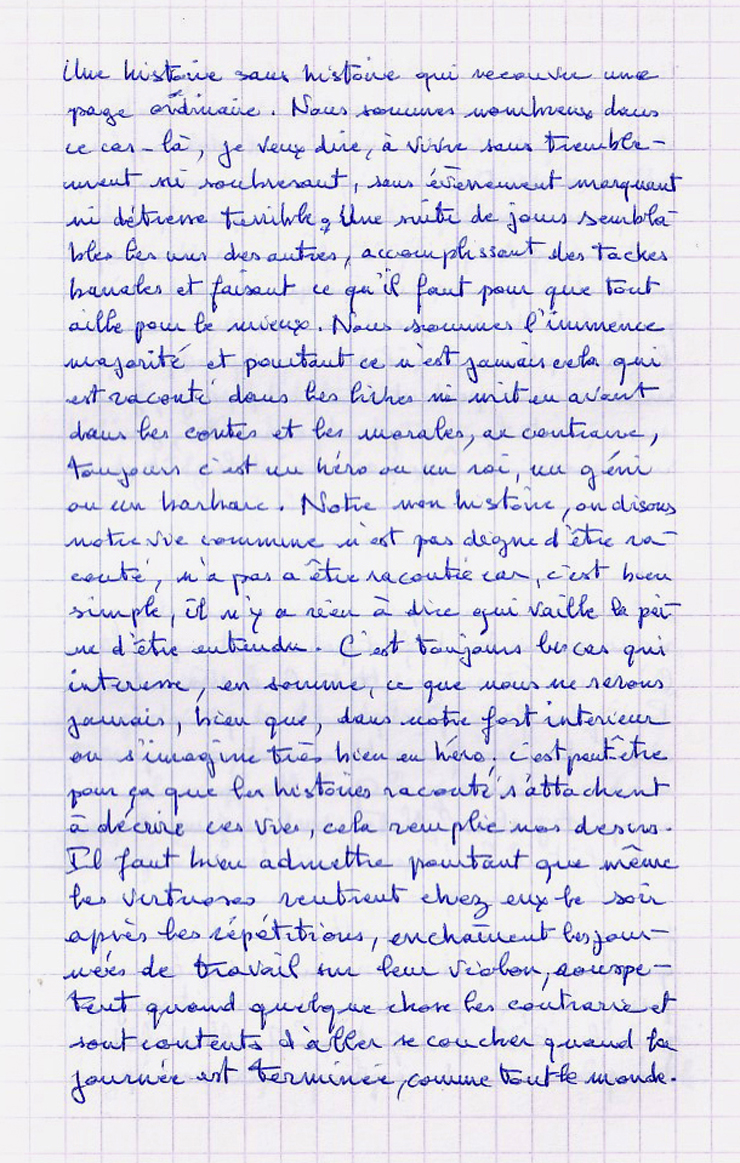 Une histoire sans histoire qui recouvre une
page ordinaire. Nous sommes nombreux dans
ce cas-là, je veux dire, à vivre sans tremble-
ment ni soubresaut, sans évènement marquant
ni détresse terrible. Une suite de jours sembla-
bles les uns des autres, accomplissant des taches
banales et faisant ce qu'il faut pour que tout
aille pour le mieux. Nous sommes l'immence
majorité et pourtant ce n'est jamais cela qui
est raconté dans les livres ni mit en avant
dans les contes et les morales, au contraire,
toujours c'est un héro ou un roi, un géni
ou un barbare. Notre non histoire, ou disons
notre vie commune n'est pas digne d'être ra-
conté, n'a pas a être racontée car, c'est bien
simple, il n'y a rien à dire qui vaille la pei-
ne d'être entendu. C'est toujours les cas qui
interesse, en somme, ce que nous ne serons
jamais, bien que, dans notre fort interieur
on s'imagine très bien en héro, c'est peut-être
pour ça que les histoires raconté s'attachent
à décrire ces vies, cela remplie nos desirs.
Il faut bien admettre pourtant que même
les virtuoses rentrent chez eux le soir
après les répétitions, enchaînent les jour-
nées de travail sur leur violon, rouspe-
tent quand quelque chose les contrarie et
sont contents d'aller se coucher quand la
journée est terminée, comme tout le monde.